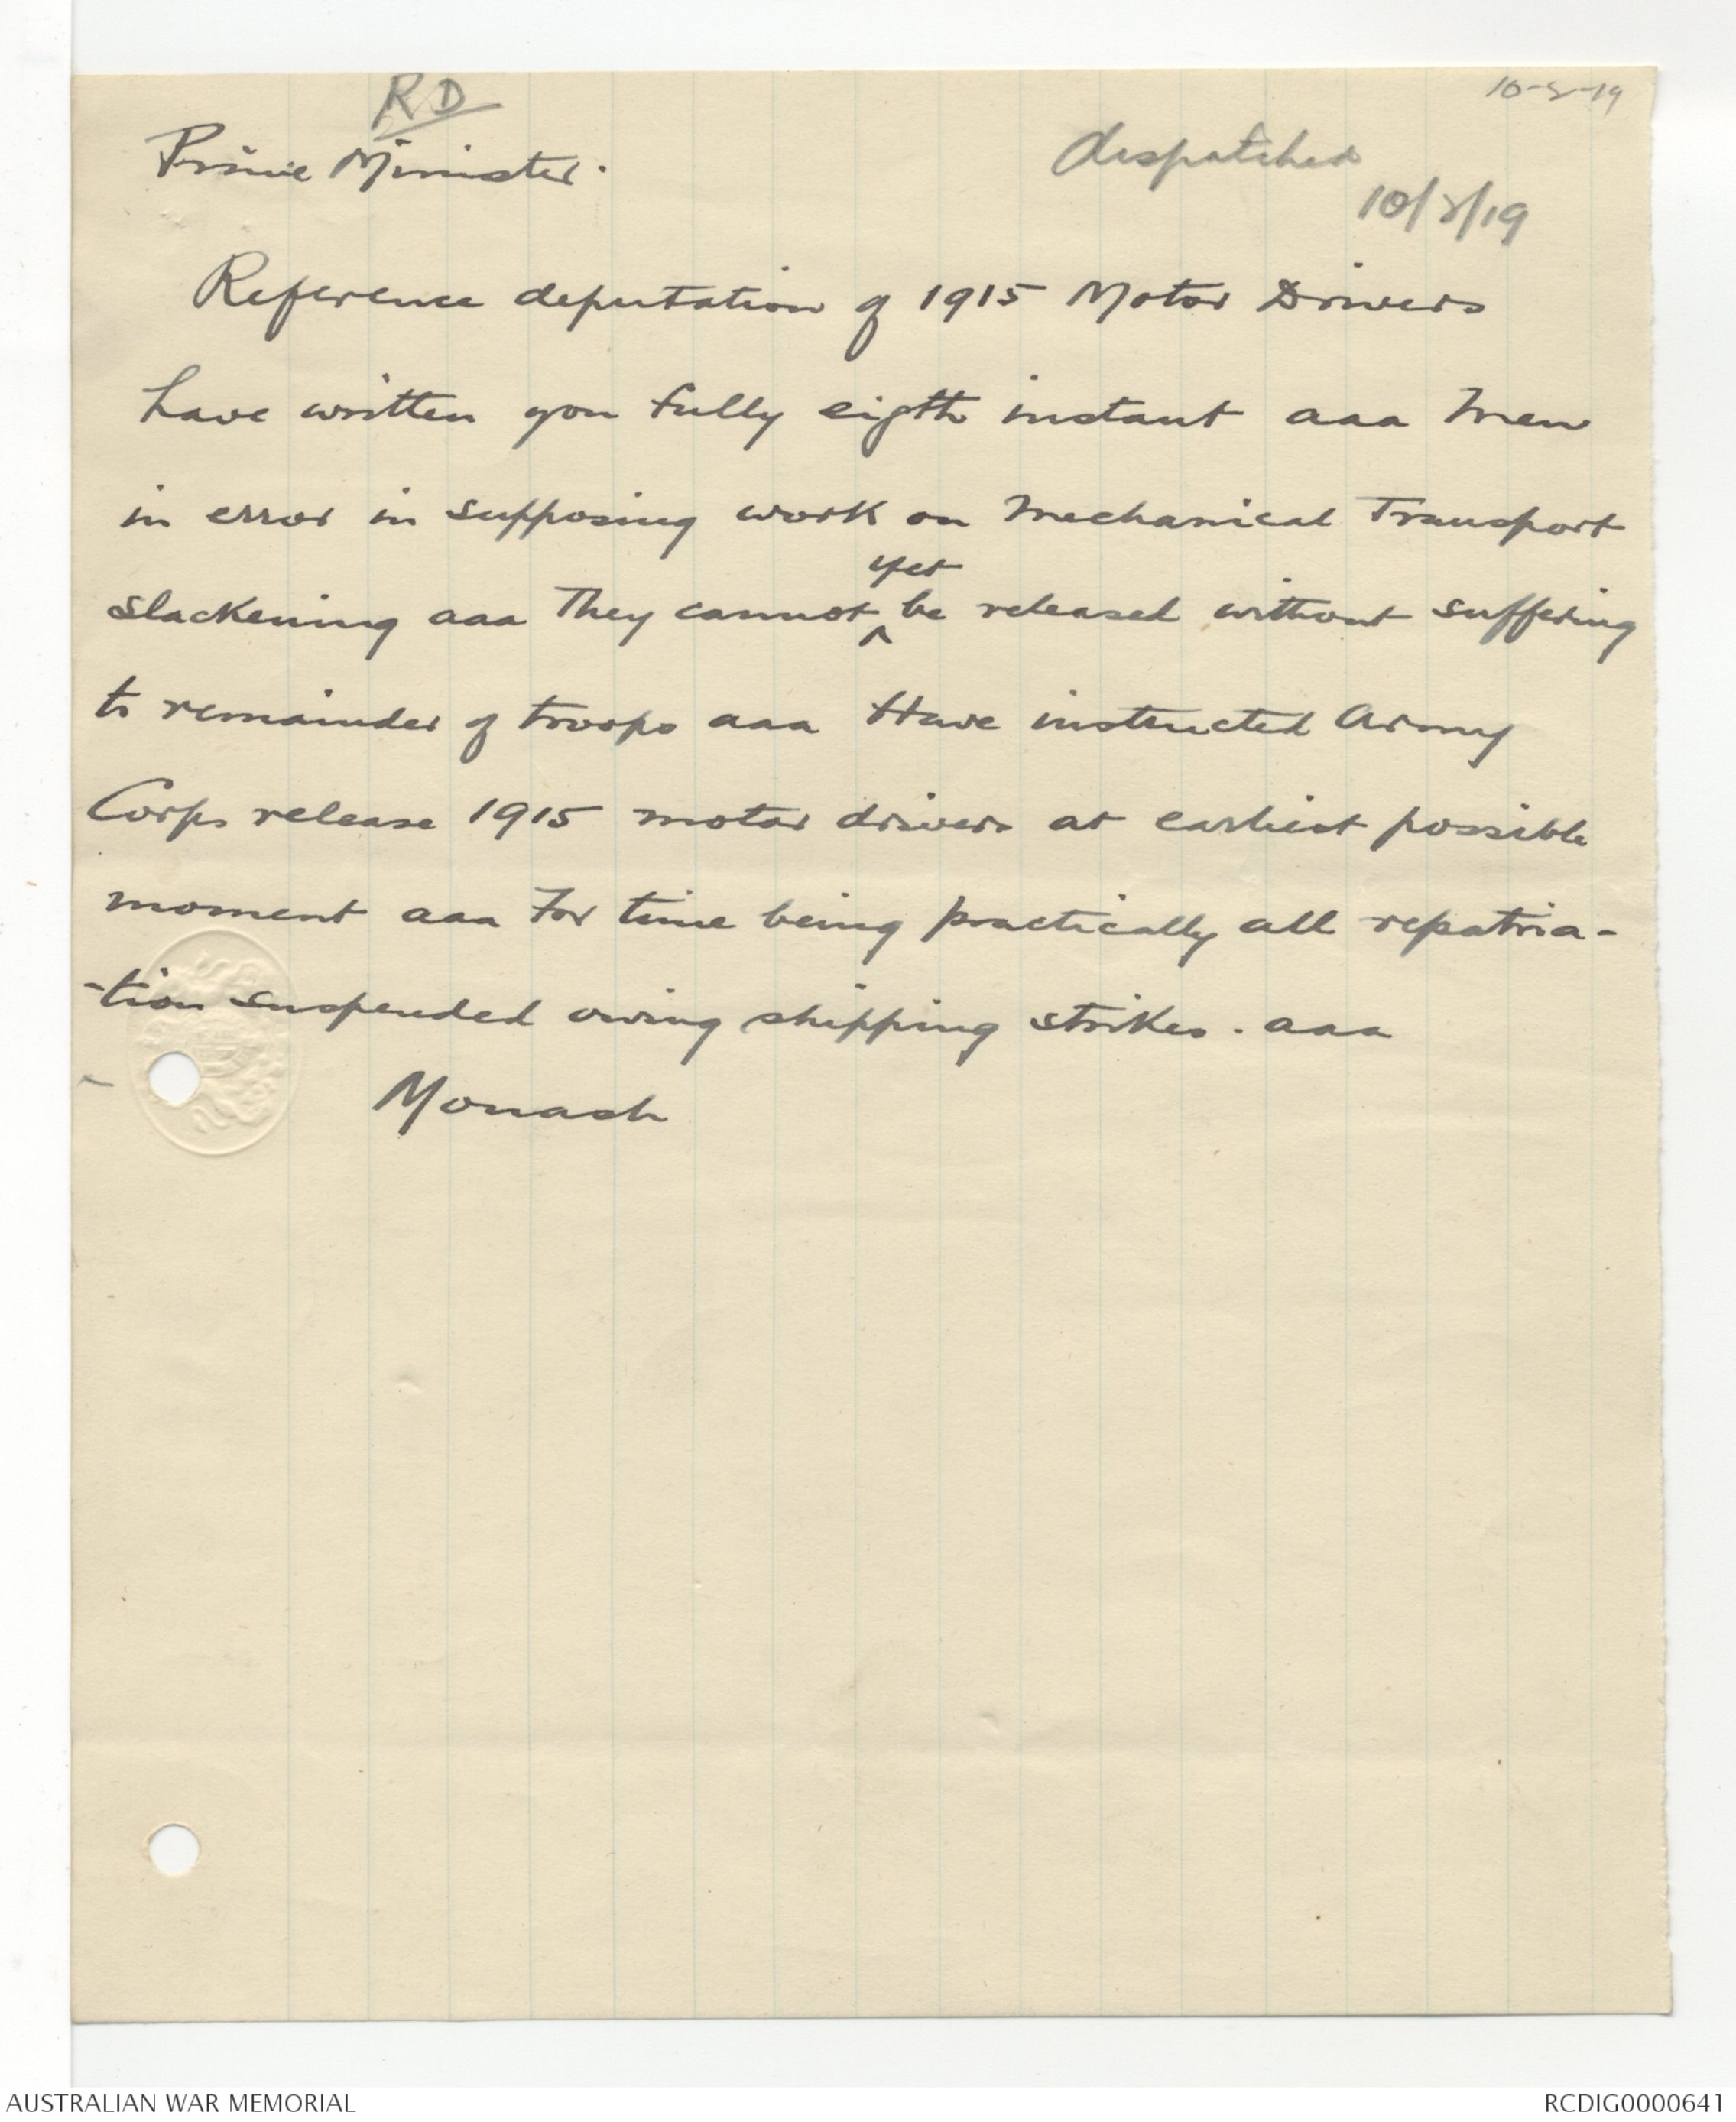 10-2-19
RD
Prime Minister.
despatched
10/2/19
Reference deputation of 1915 Motor Drivers
have written you fully eigth instant aaa Men
in error in supposing work on Mechanical Transport
slackening aaa They cannot yet be released without suffering
to remainder of troops aaa Have instructed Army
Corps release 1915 motor drivers at earliest possible
moment aaa For time being practically all repatria-
-tion suspended owing shipping strikes. aaa
Monash
AUSTRALIAN WAR MEMORIAL
RCDIG0000641